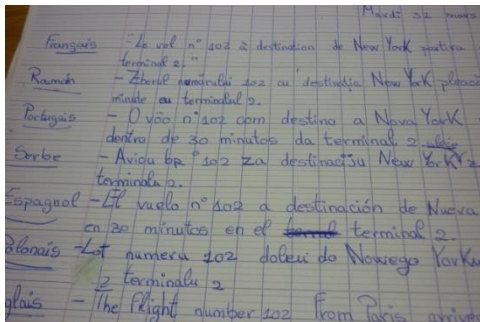 Mardi 31 mars
Français - "Le vol n° 102 à destination de New York partira
terminal 2."
Roumain - Zborul numărului 102 cu destinația New York pleacă
minute cu terminalul 2.
Portugais - O vôo n° 102 com destino a Nova York
dentro de 30 minutos da terminal 2
Serbe - Avion bp. 102 za destinaciju New York
terminala 2.
Espagnol - El vuelo n° 102 a destinación de Nueva
en 30 minutos en el terminal 2.
Polonais - Lot numeru 102 do Nowego Yorku
z terminalu 2
glais - The flight number 102 from Paris arrives